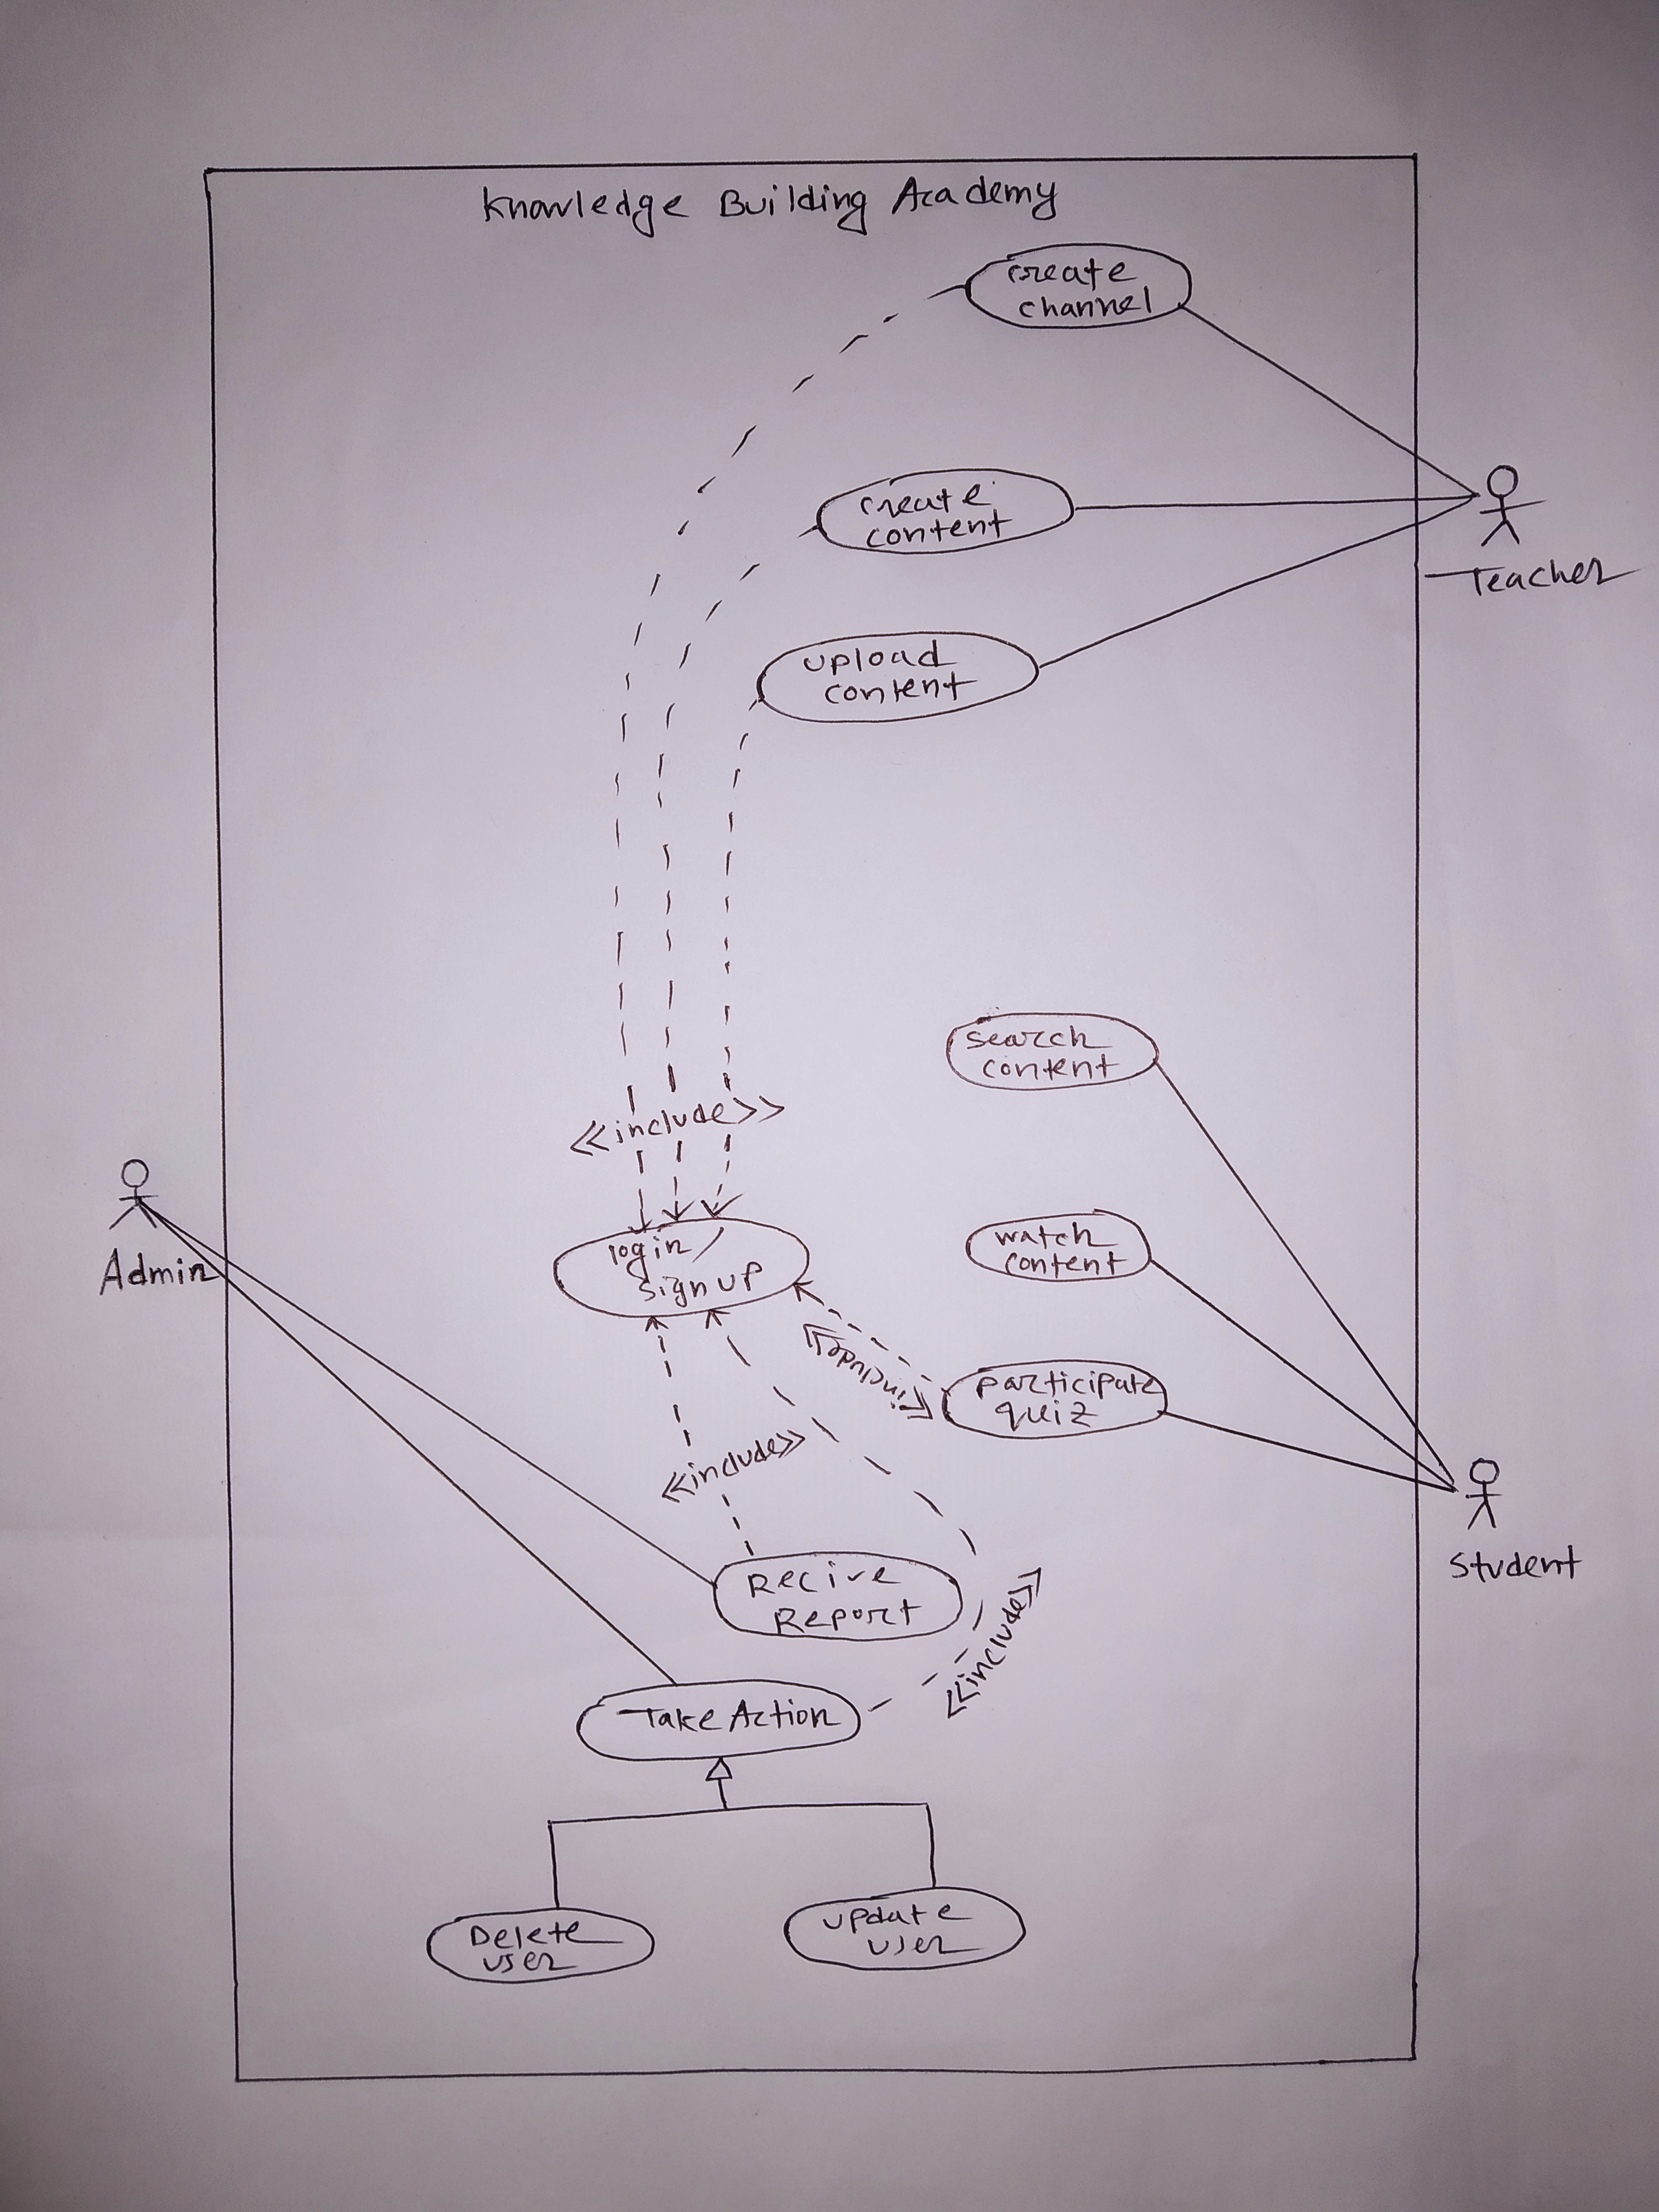 Knowledge Building Academy
create
channel
create
content
Teacher
upload
content
search
content
<<include>>
Admin
login/
sign up
watch
content
<<include>>
participate
quiz
<<include>>
Student
Recive
Report
<<include>>
Take Action
Delete
user
update
user